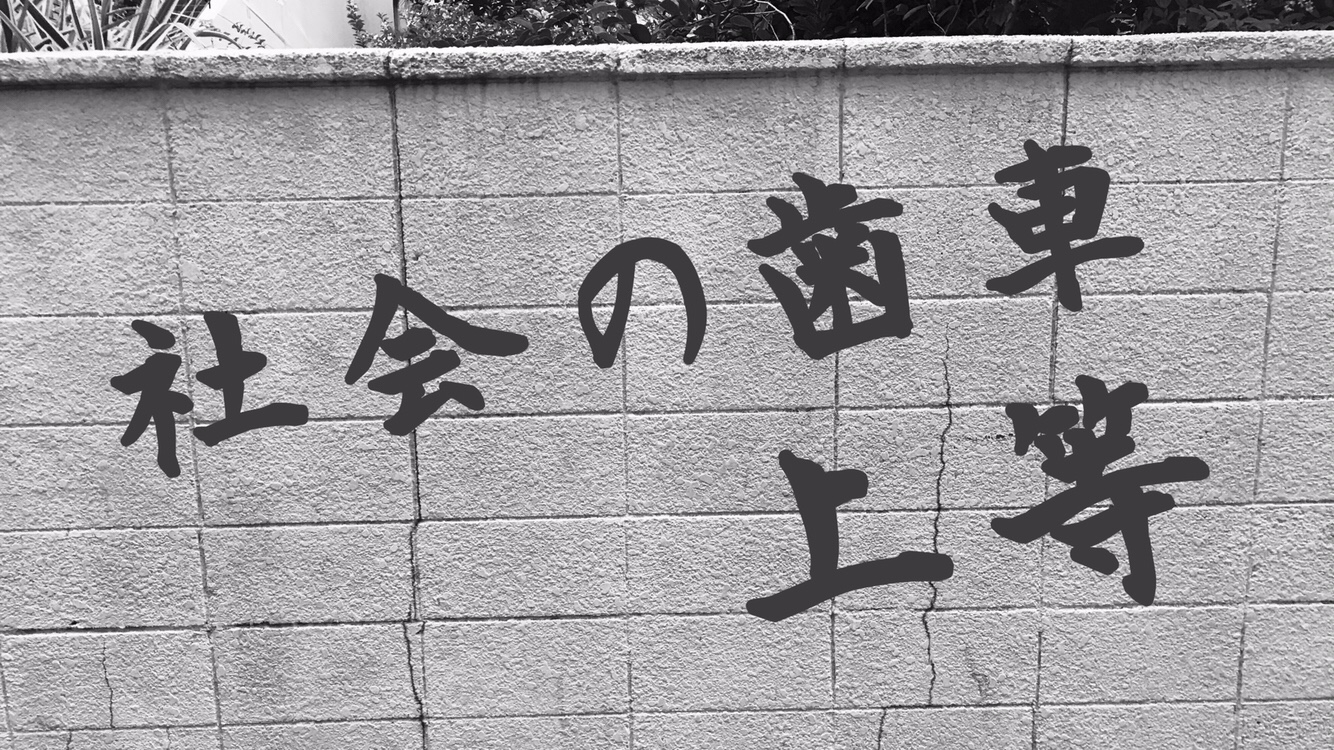 社会の歯車
上等